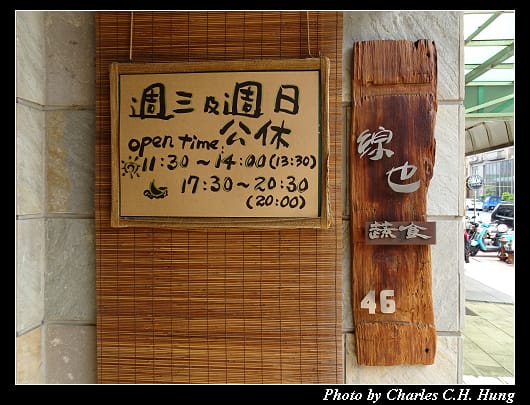 週三及週日
公休
open time:
11:30~14:00(13:30)
17:30~20:30
(20:00)
綠也
蔬食
46
Photo by Charles C.H. Hung